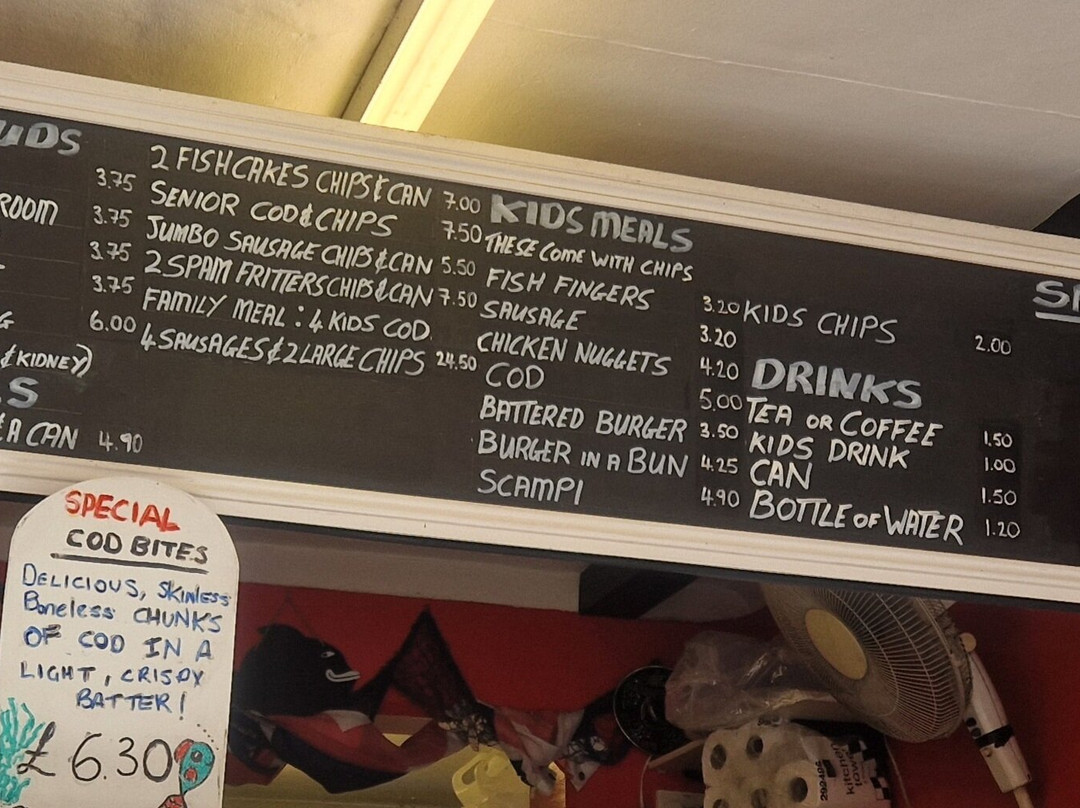 3.75
3.75
3.75
3.75
6.00
& KIDNEY)
A CAN 4.90
2 FISHCAKES CHIPS & CAN 7.00
SENIOR COD & CHIPS 7.50
JUMBO SAUSAGE CHIPS & CAN 5.50
2 SPAM FRITTERS CHIPS & CAN 7.50
FAMILY MEAL: 4 KIDS COD
4 SAUSAGES & 2 LARGE CHIPS 24.50
KIDS MEALS
THESE COME WITH CHIPS
FISH FINGERS 3.20
SAUSAGE 3.20
CHICKEN NUGGETS 4.20
COD 5.00
BATTERED BURGER 3.50
BURGER IN A BUN 4.25
SCAMPI 4.90
KIDS CHIPS 2.00
DRINKS
TEA OR COFFEE 1.50
KIDS DRINK 1.00
CAN 1.50
BOTTLE OF WATER 1.20
SPECIAL
COD BITES
DELICIOUS, SKINLESS
Boneless CHUNKS
OF COD IN A
LIGHT, CRISPY
BATTER!
£6.30
kitchen